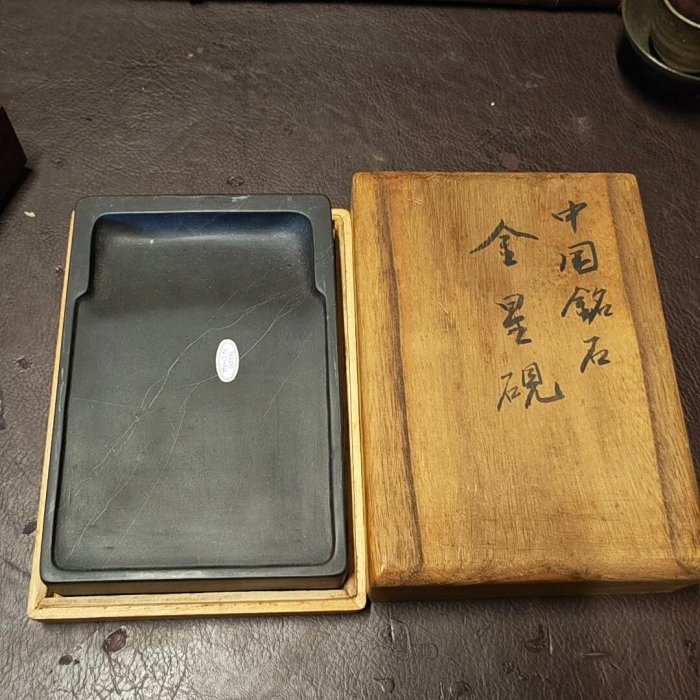 中国銘石
金星硯